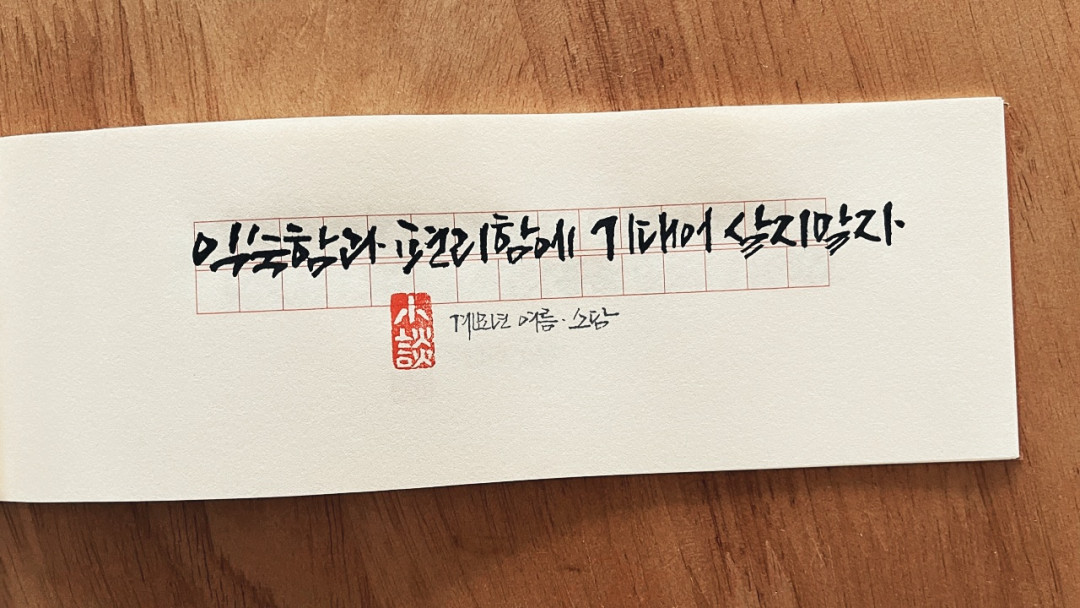 익숙함과 편리함에 기대어 살지말자
小談
계묘년 여름. 소담